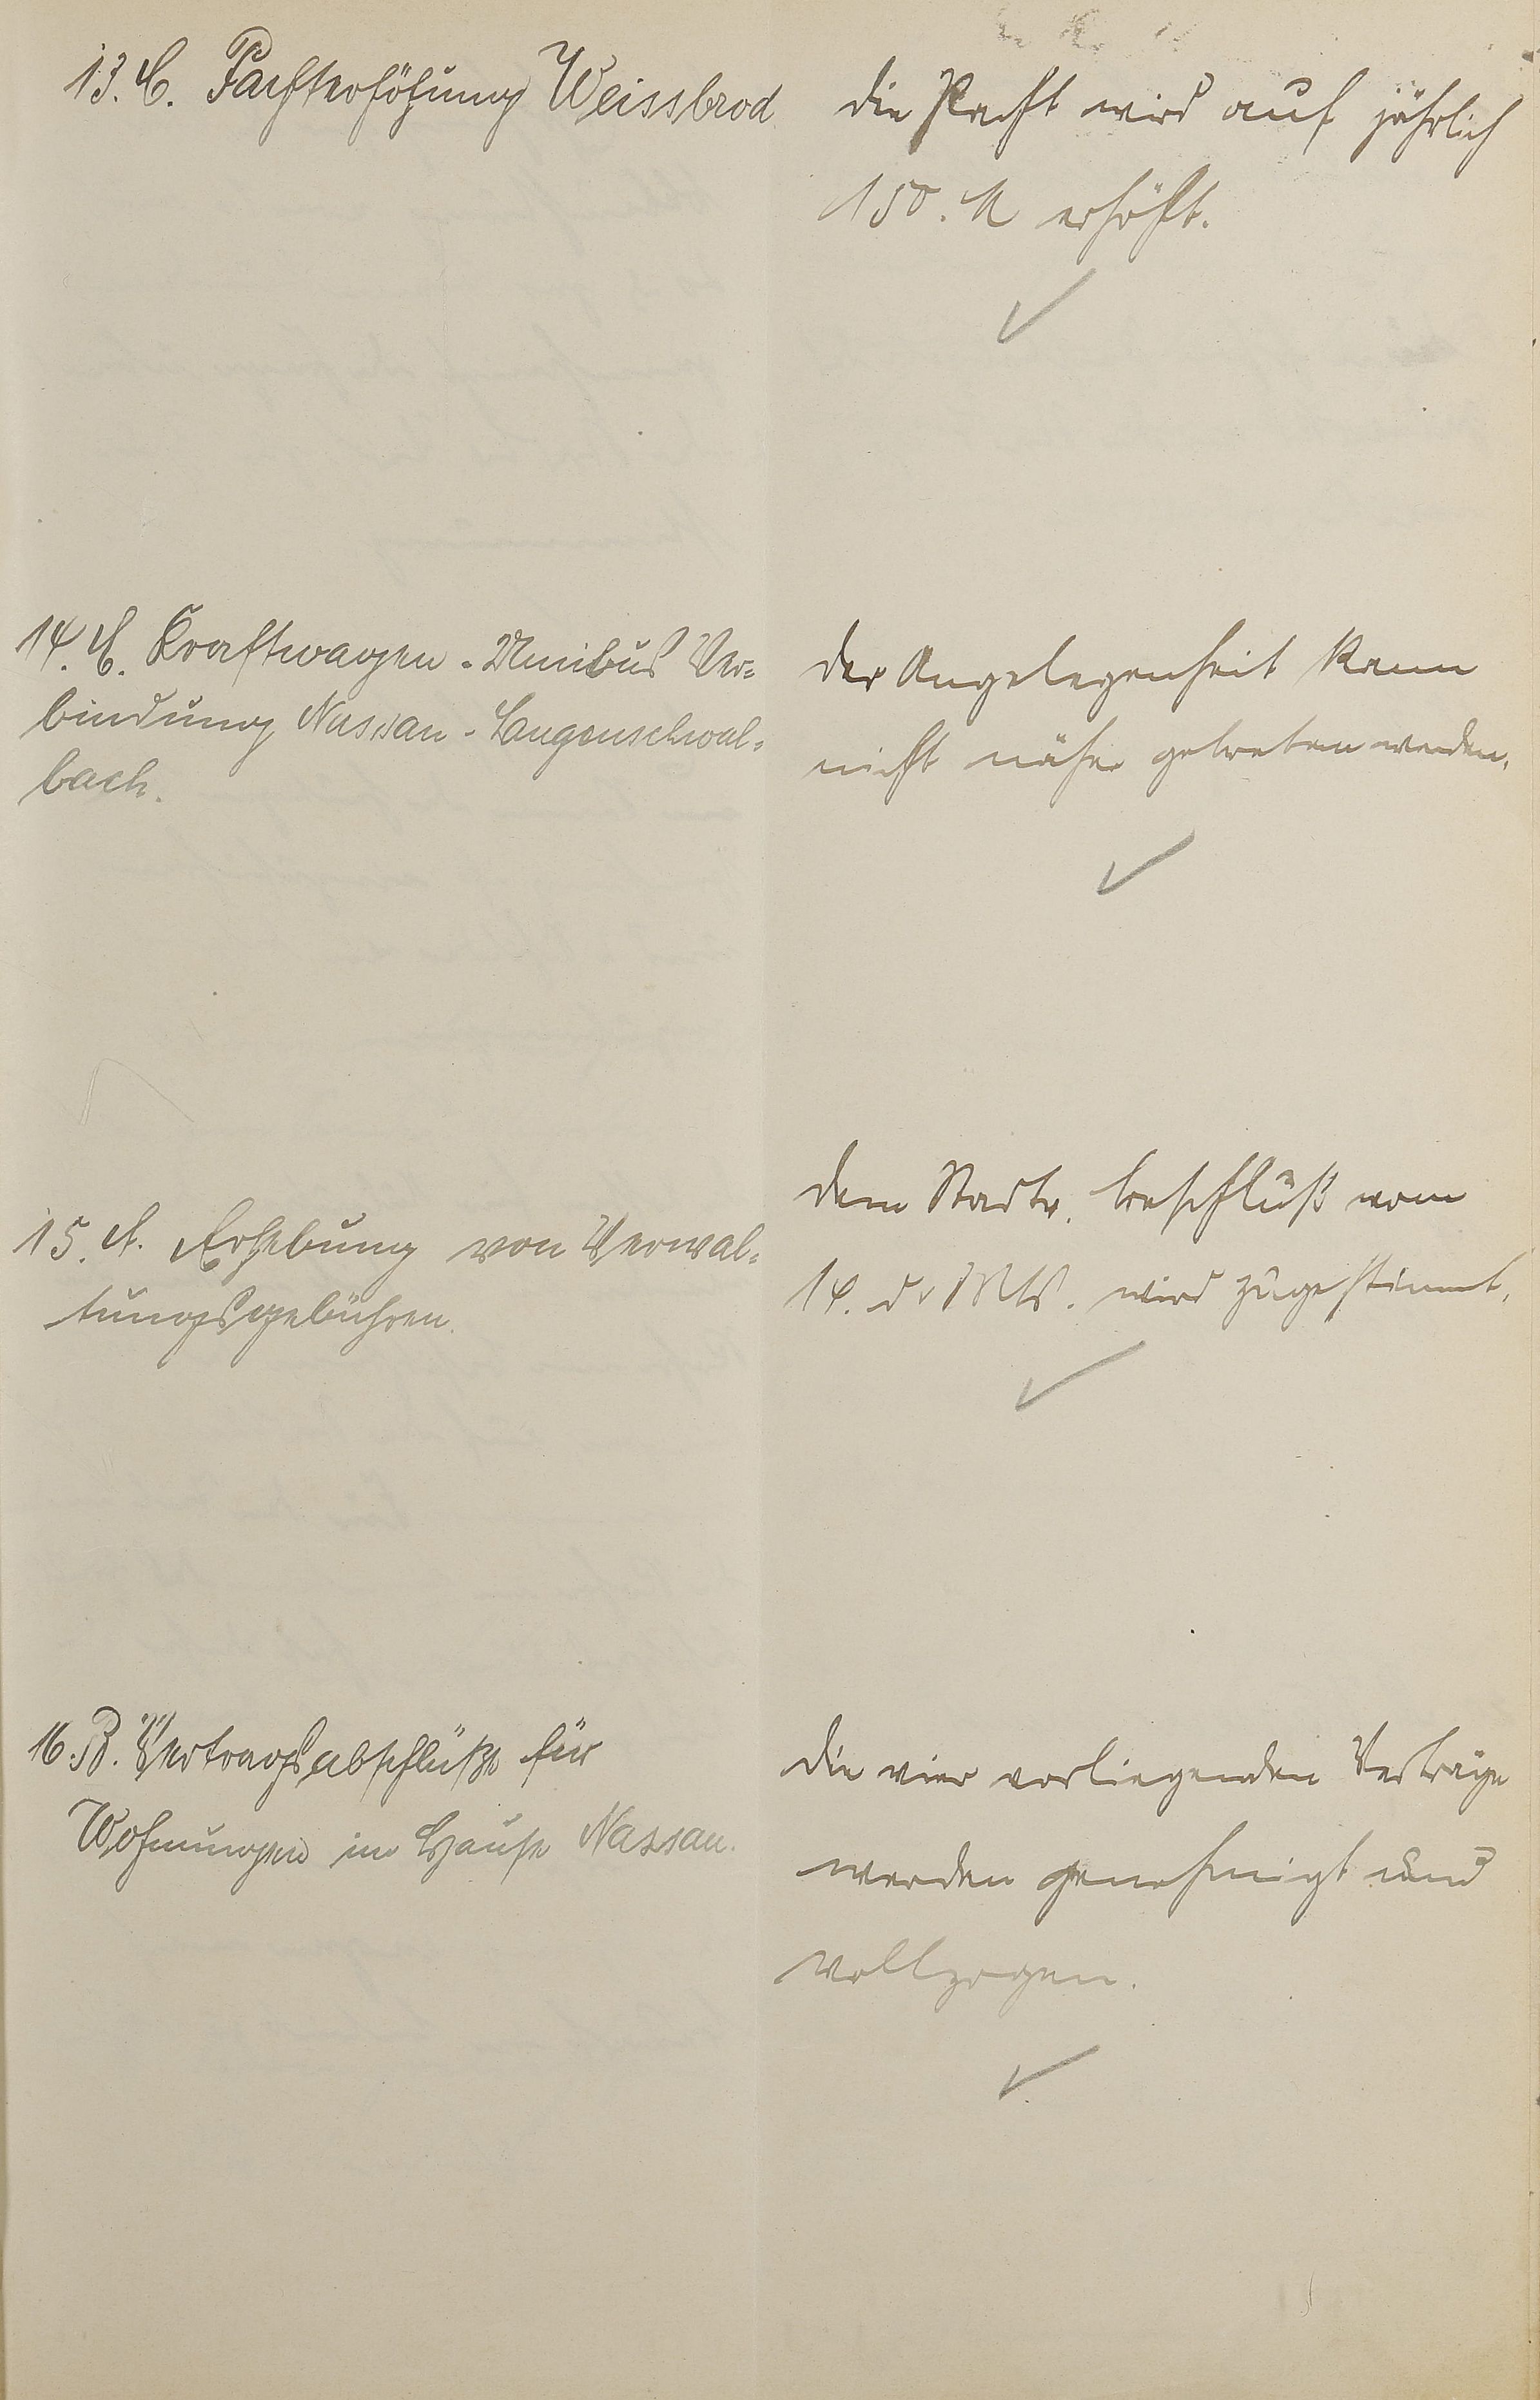 13. C. Pachterhöhung Weissbrod
die Pacht wird auf jährlich
150. M erhöht.
14. C. Kraftwagen-Omnibus Ver=
bindung Nassau-Langenschwal=
bach.
der Angelegenheit kann
nicht näher getreten werden.
15. A. Erhebung von Verwal=
tungsgebühren.
dem Stadtv. beschluß vom
14. d. Mts. wird zugestimmt.
16. B. Vertragsabschlüße für
Wohnungen im Hause Nassau.
die vier vorliegenden Verträge
werden genehmigt und
vollzogen.